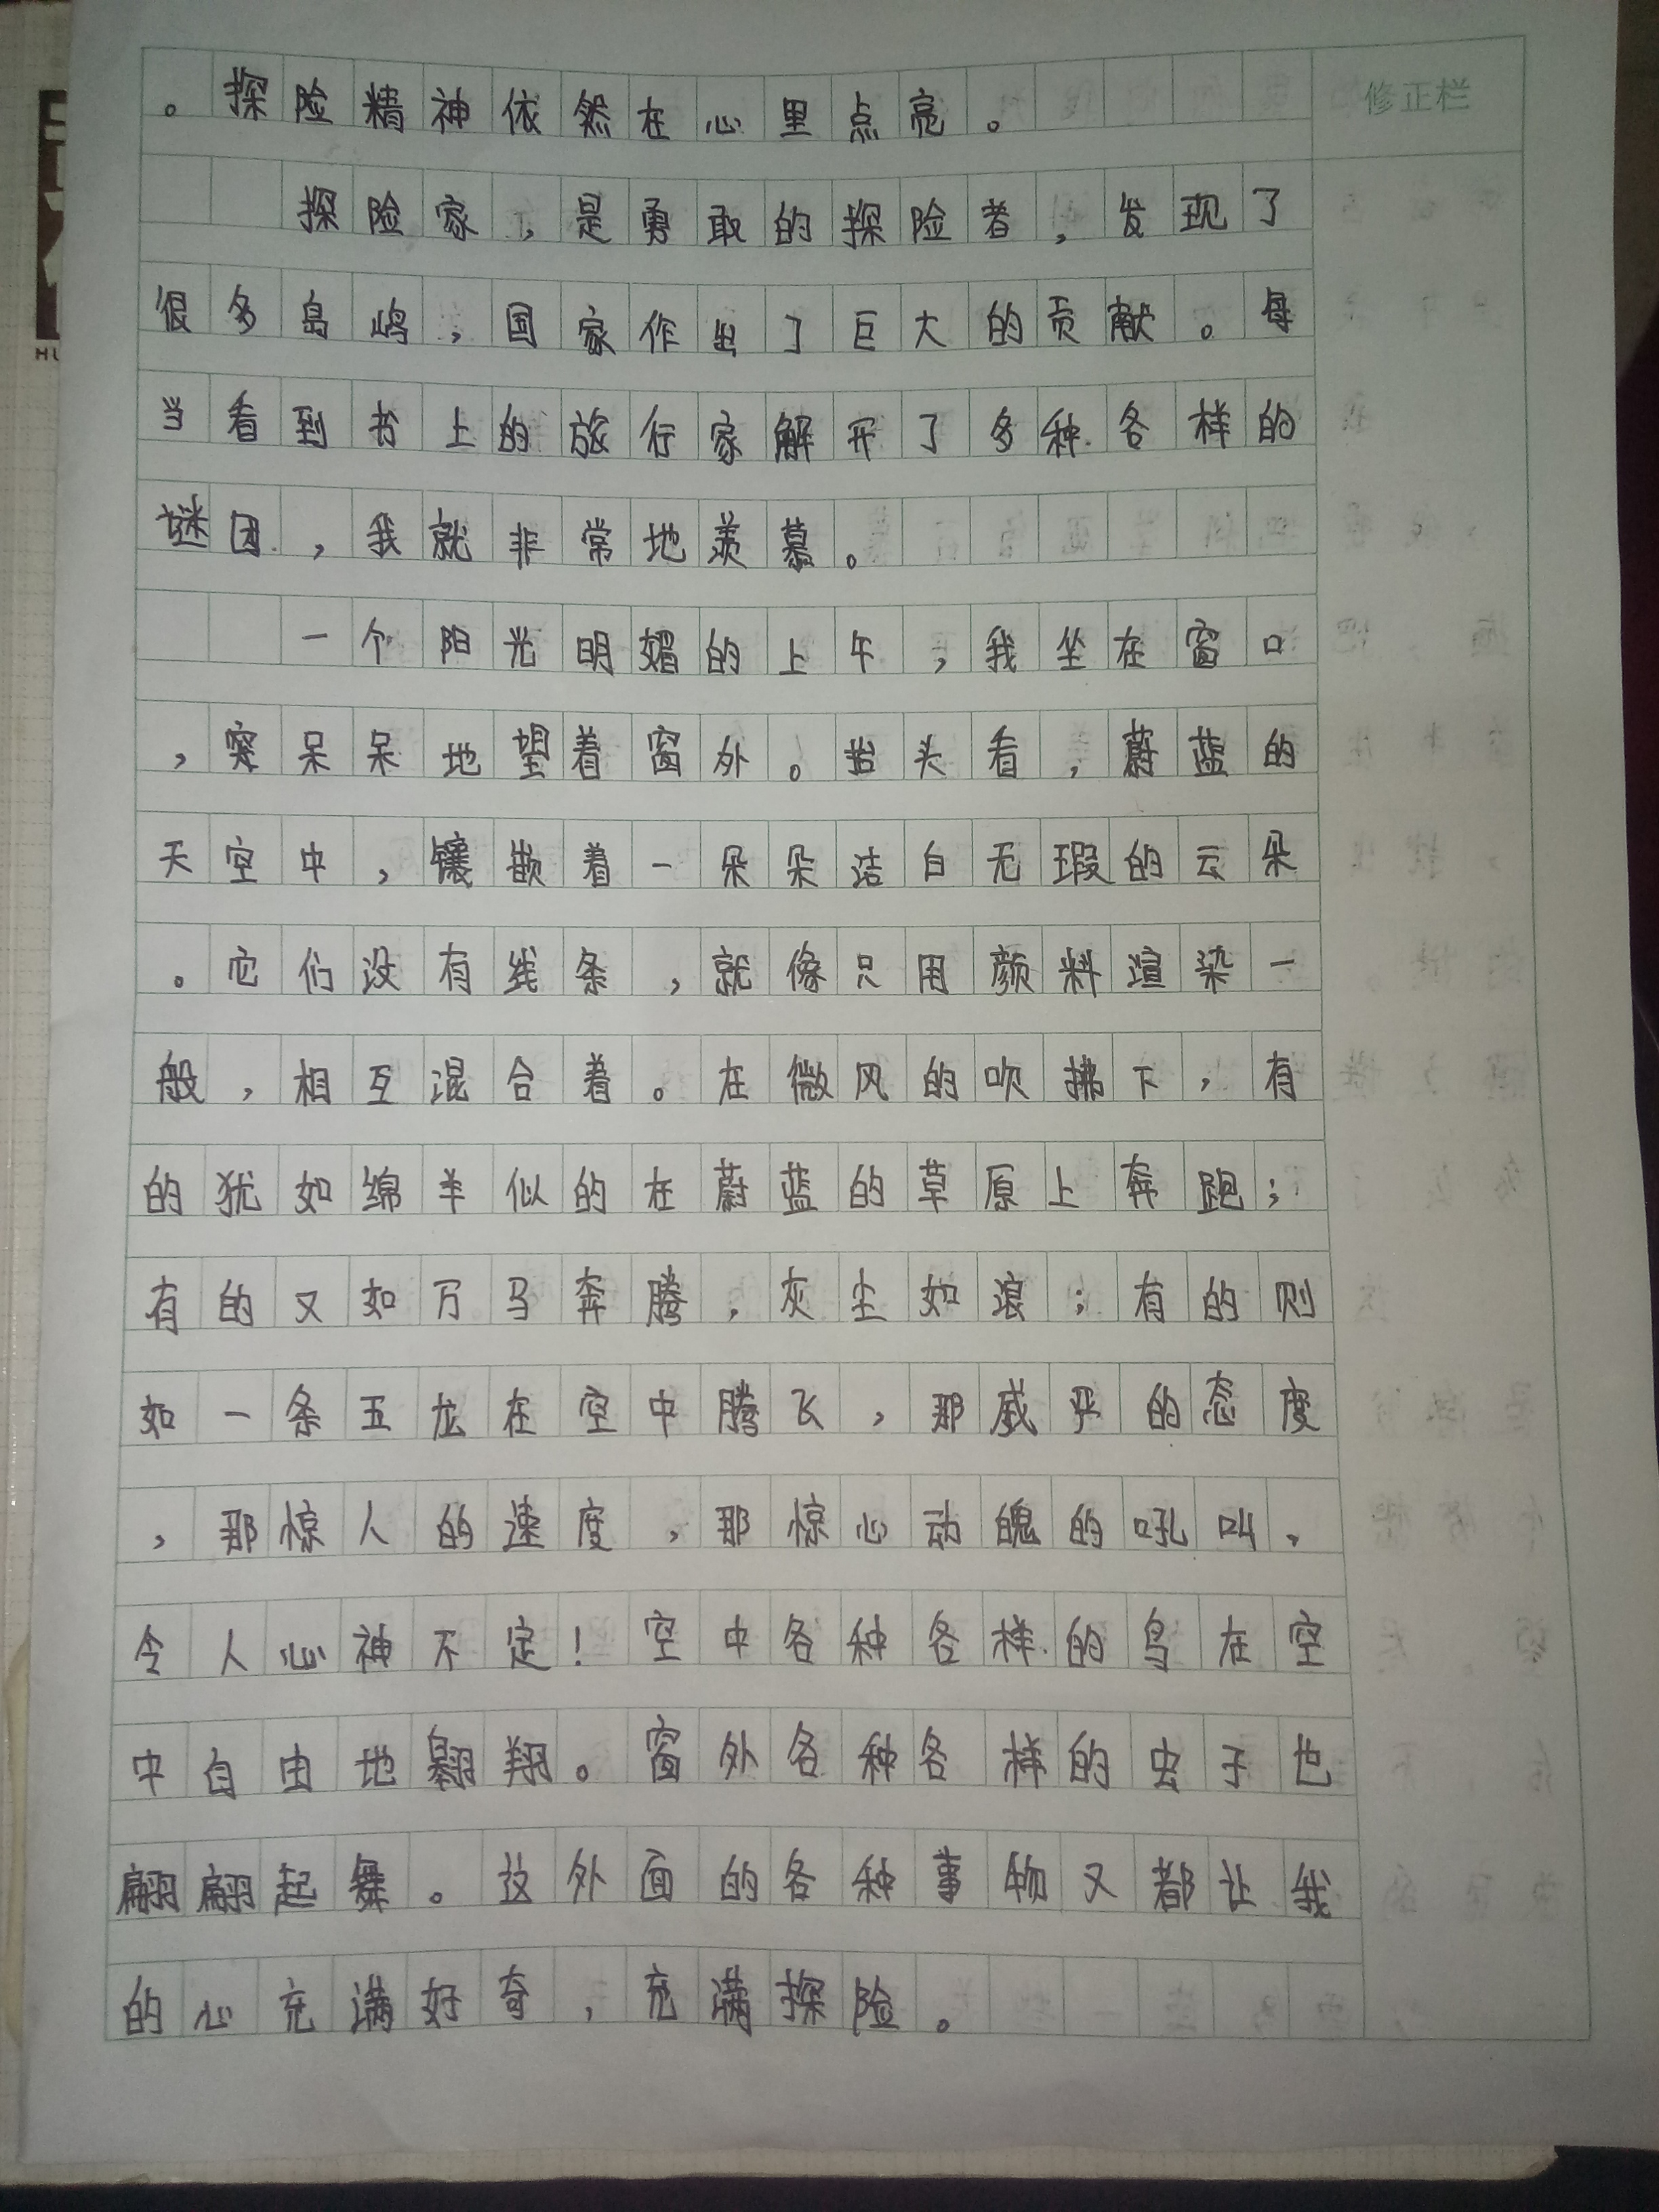 修正栏
。探险精神依然在心里点亮。
探险家,是勇敢的探险者,发现了
很多岛屿,国家作出了巨大的贡献。每
当看到书上的旅行家解开了多种各样的
谜团,我就非常地羡慕。
一个阳光明媚的上午,我坐在窗口
,呆呆地望着窗外。抬头看,蔚蓝的
天空中,镶嵌着一朵朵洁白无瑕的云朵
。它们没有线条,就像只用颜料渲染一
般,相互混合着。在微风的吹拂下,有
的犹如绵羊似的在蔚蓝的草原上奔跑;
有的又如万马奔腾,灰尘如浪;有的则
如一条五龙在空中腾飞,那威严的态度
,那惊人的速度,那惊心动魄的吼叫,
令人心神不定!空中各种各样的鸟在空
中自由地翱翔。窗外各种各样的虫子也
翩翩起舞。这外面的各种事物又都让我
的心充满好奇,充满探险。